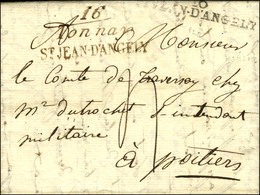 16
Tonnay
ST JEAN-D'ANGELY
JEAN-D'ANGELY
Monsieur
le Comte de chez
Mr dutrochet intendant
militaire
à poitiers